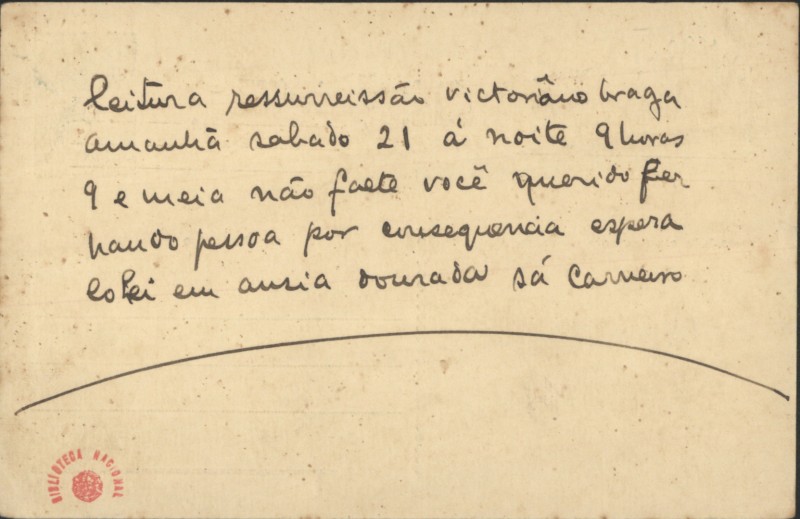 leitura ressurreissão victoriâno braga
amanhã sabado 21 á noite 9 horas
9 e meia não faete você querido fer
nando pessoa por consequencia espera
lohei em ansia dourada sá Carneiro
BIBLIOTECA NACIONAL